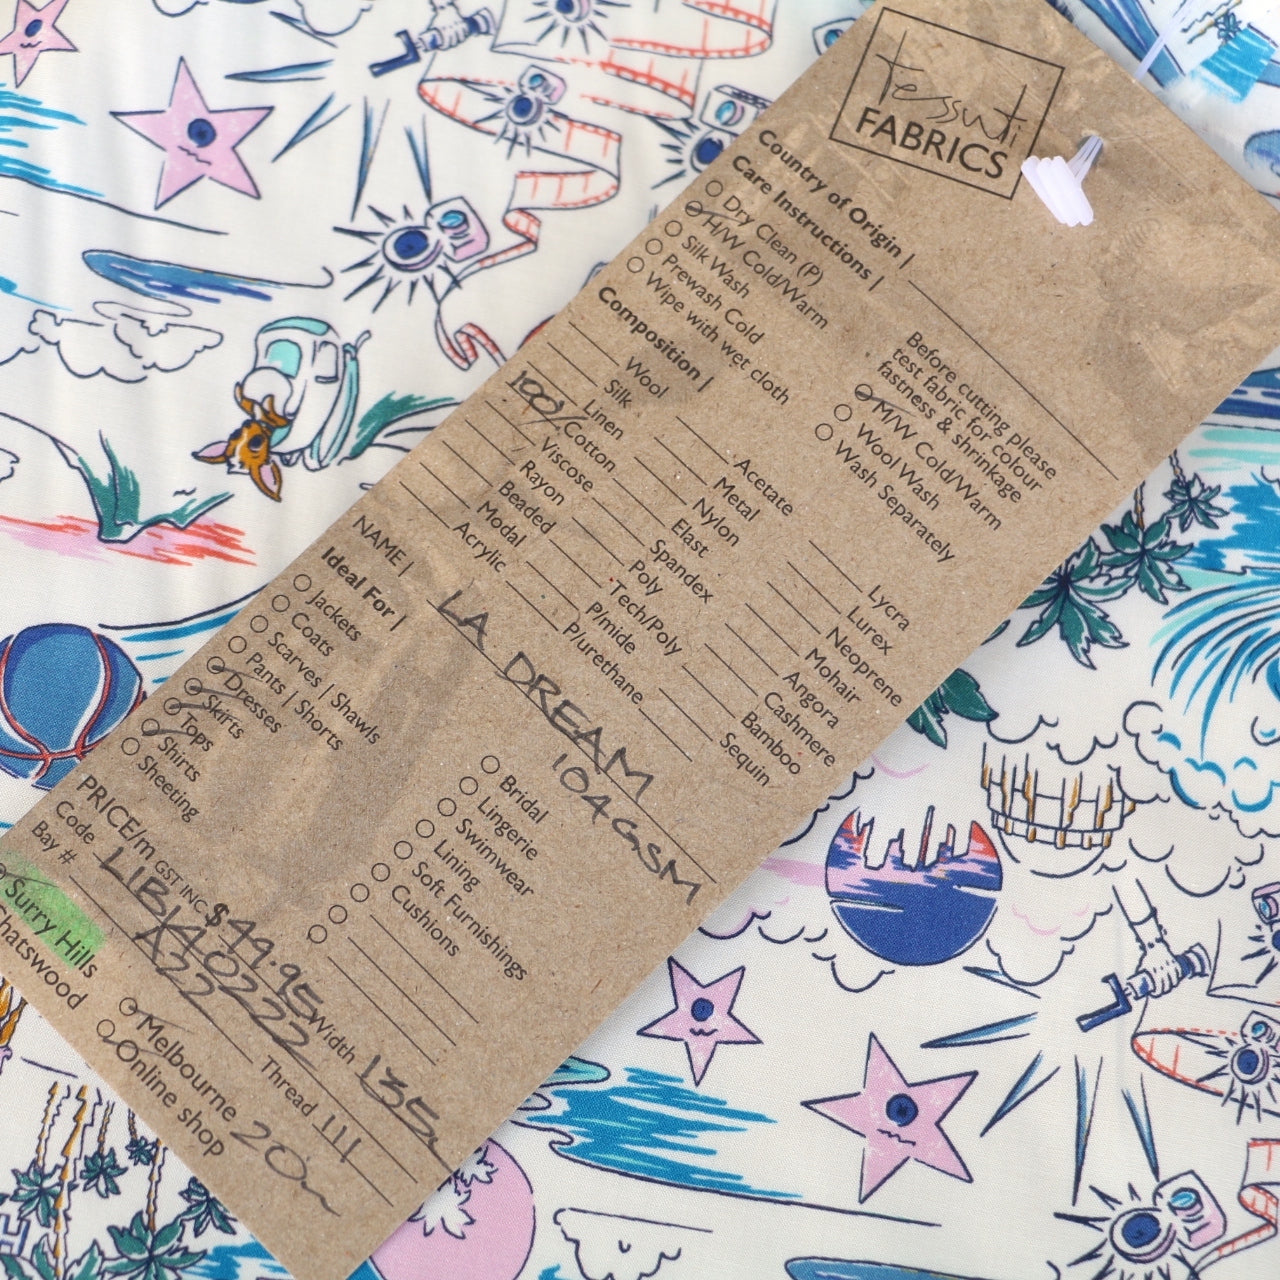 tessuti
FABRICS
Country of Origin |
Care Instructions |
Dry Clean (P)
H/W Cold/Warm
Silk Wash
Prewash Cold
Wipe with wet cloth
Before cutting please
test fabric for colour
fastness & shrinkage
M/W Cold/Warm
Wool Wash
Wash Separately
Composition |
Wool
Silk
Linen
100% Cotton
Viscose
Rayon
Beaded
Modal
Acrylic
Acetate
Metal
Nylon
Elast
Spandex
Poly
Tech/Poly
P/mide
P/urethane
Lycra
Lurex
Neoprene
Mohair
Angora
Cashmere
Bamboo
Sequin
NAME | LA DREAM
104GSM
Ideal For |
Jackets
Coats
Scarves | Shawls
Pants | Shorts
Dresses
Skirts
Tops
Shirts
Sheeting
Bridal
Lingerie
Swimwear
Lining
Soft Furnishings
Cushions
PRICE/m GST INC $49.95 Width 135
Code LIB1402222 Thread 111
Bay # A22
Surry Hills
Chatswood
Melbourne 20m
Online shop